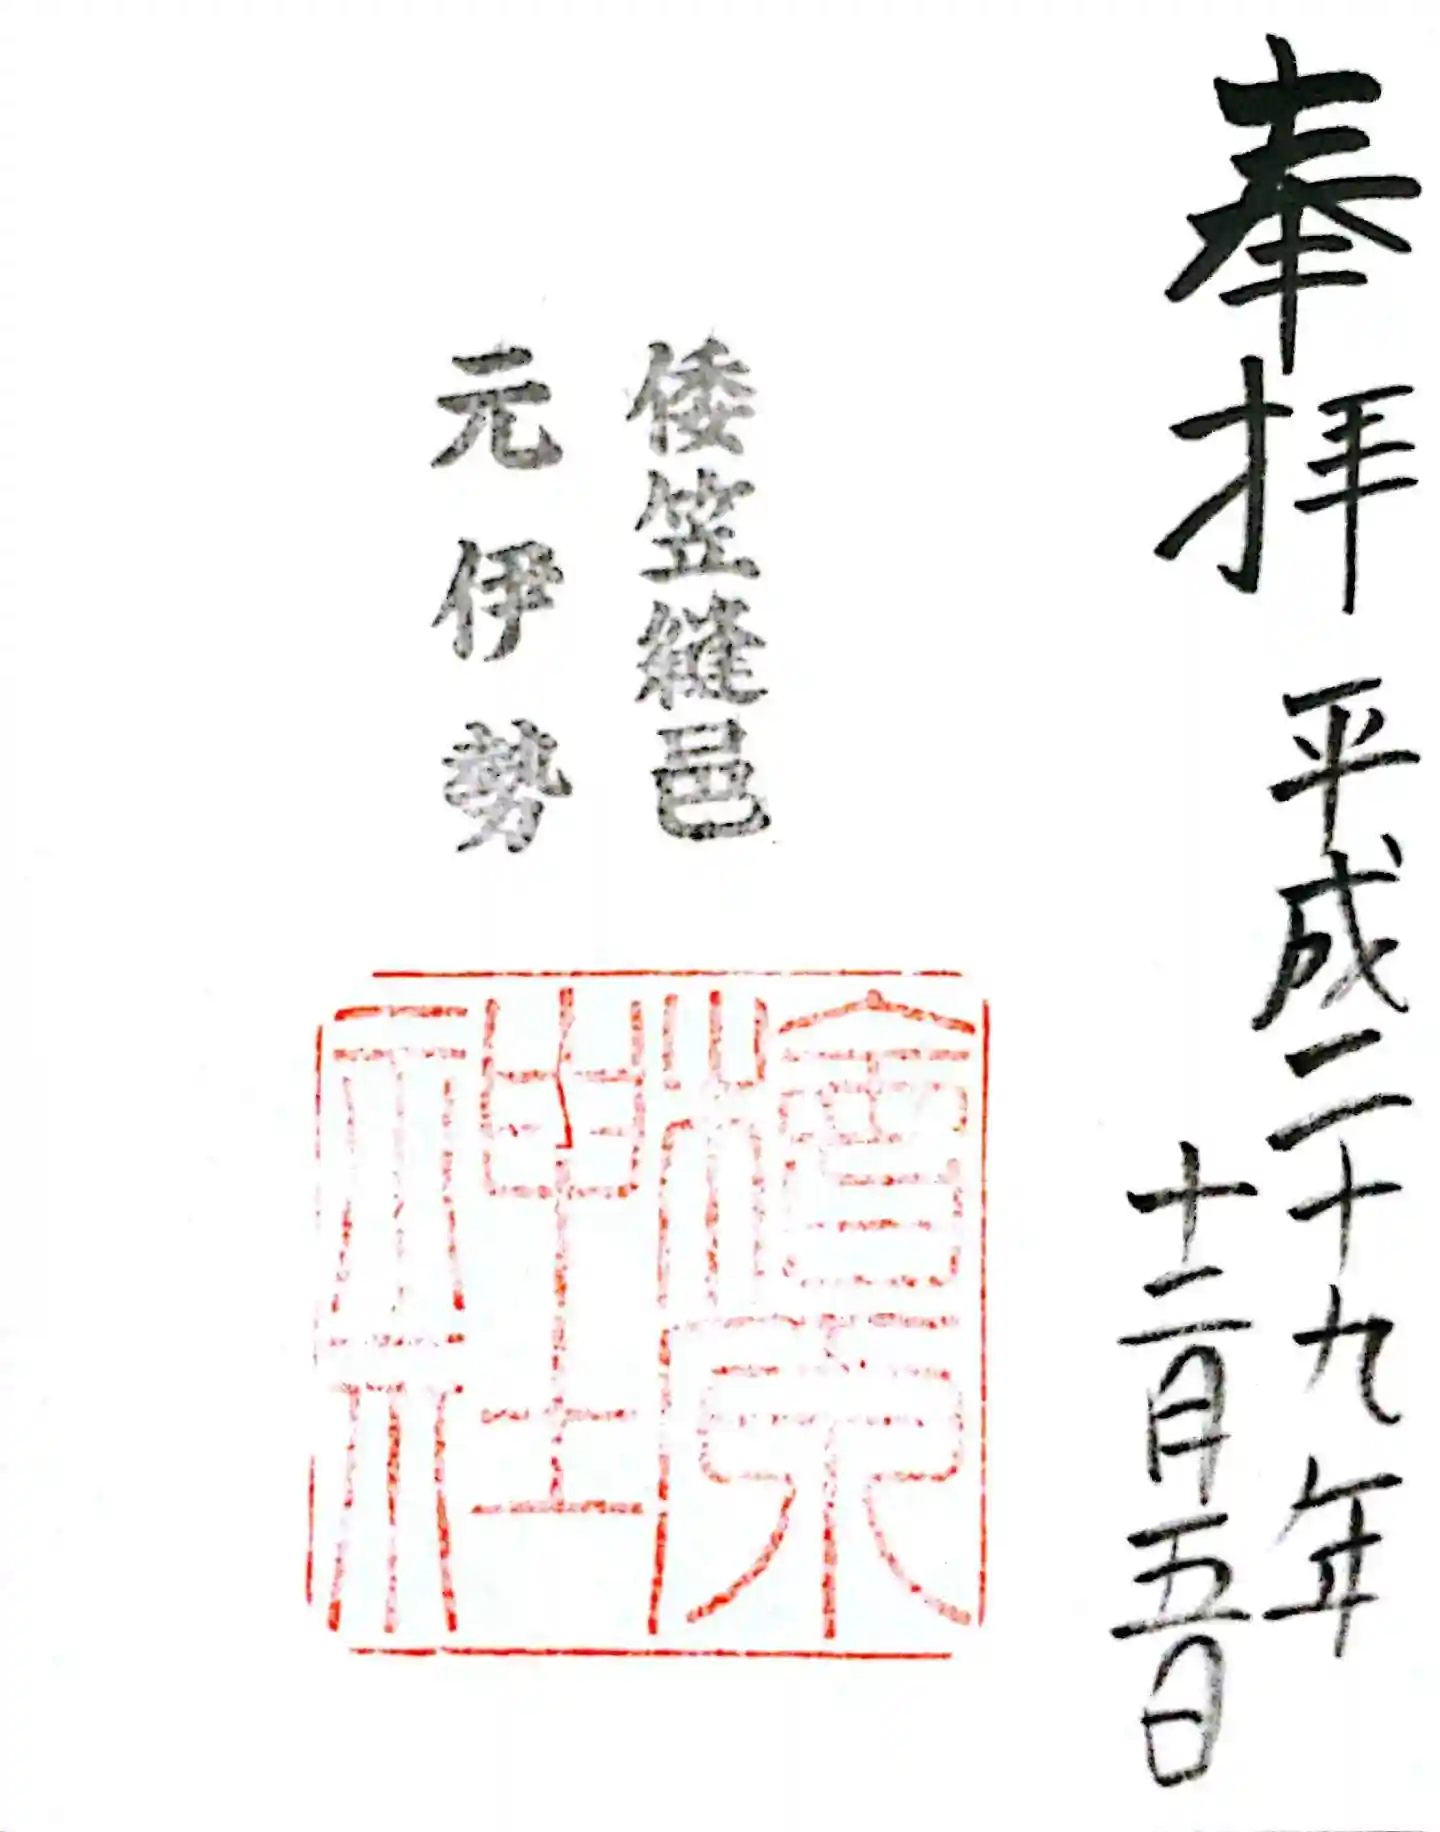 奉拝
平成二十九年
十二月五日
倭笠縫邑
元伊勢
檜原
神社